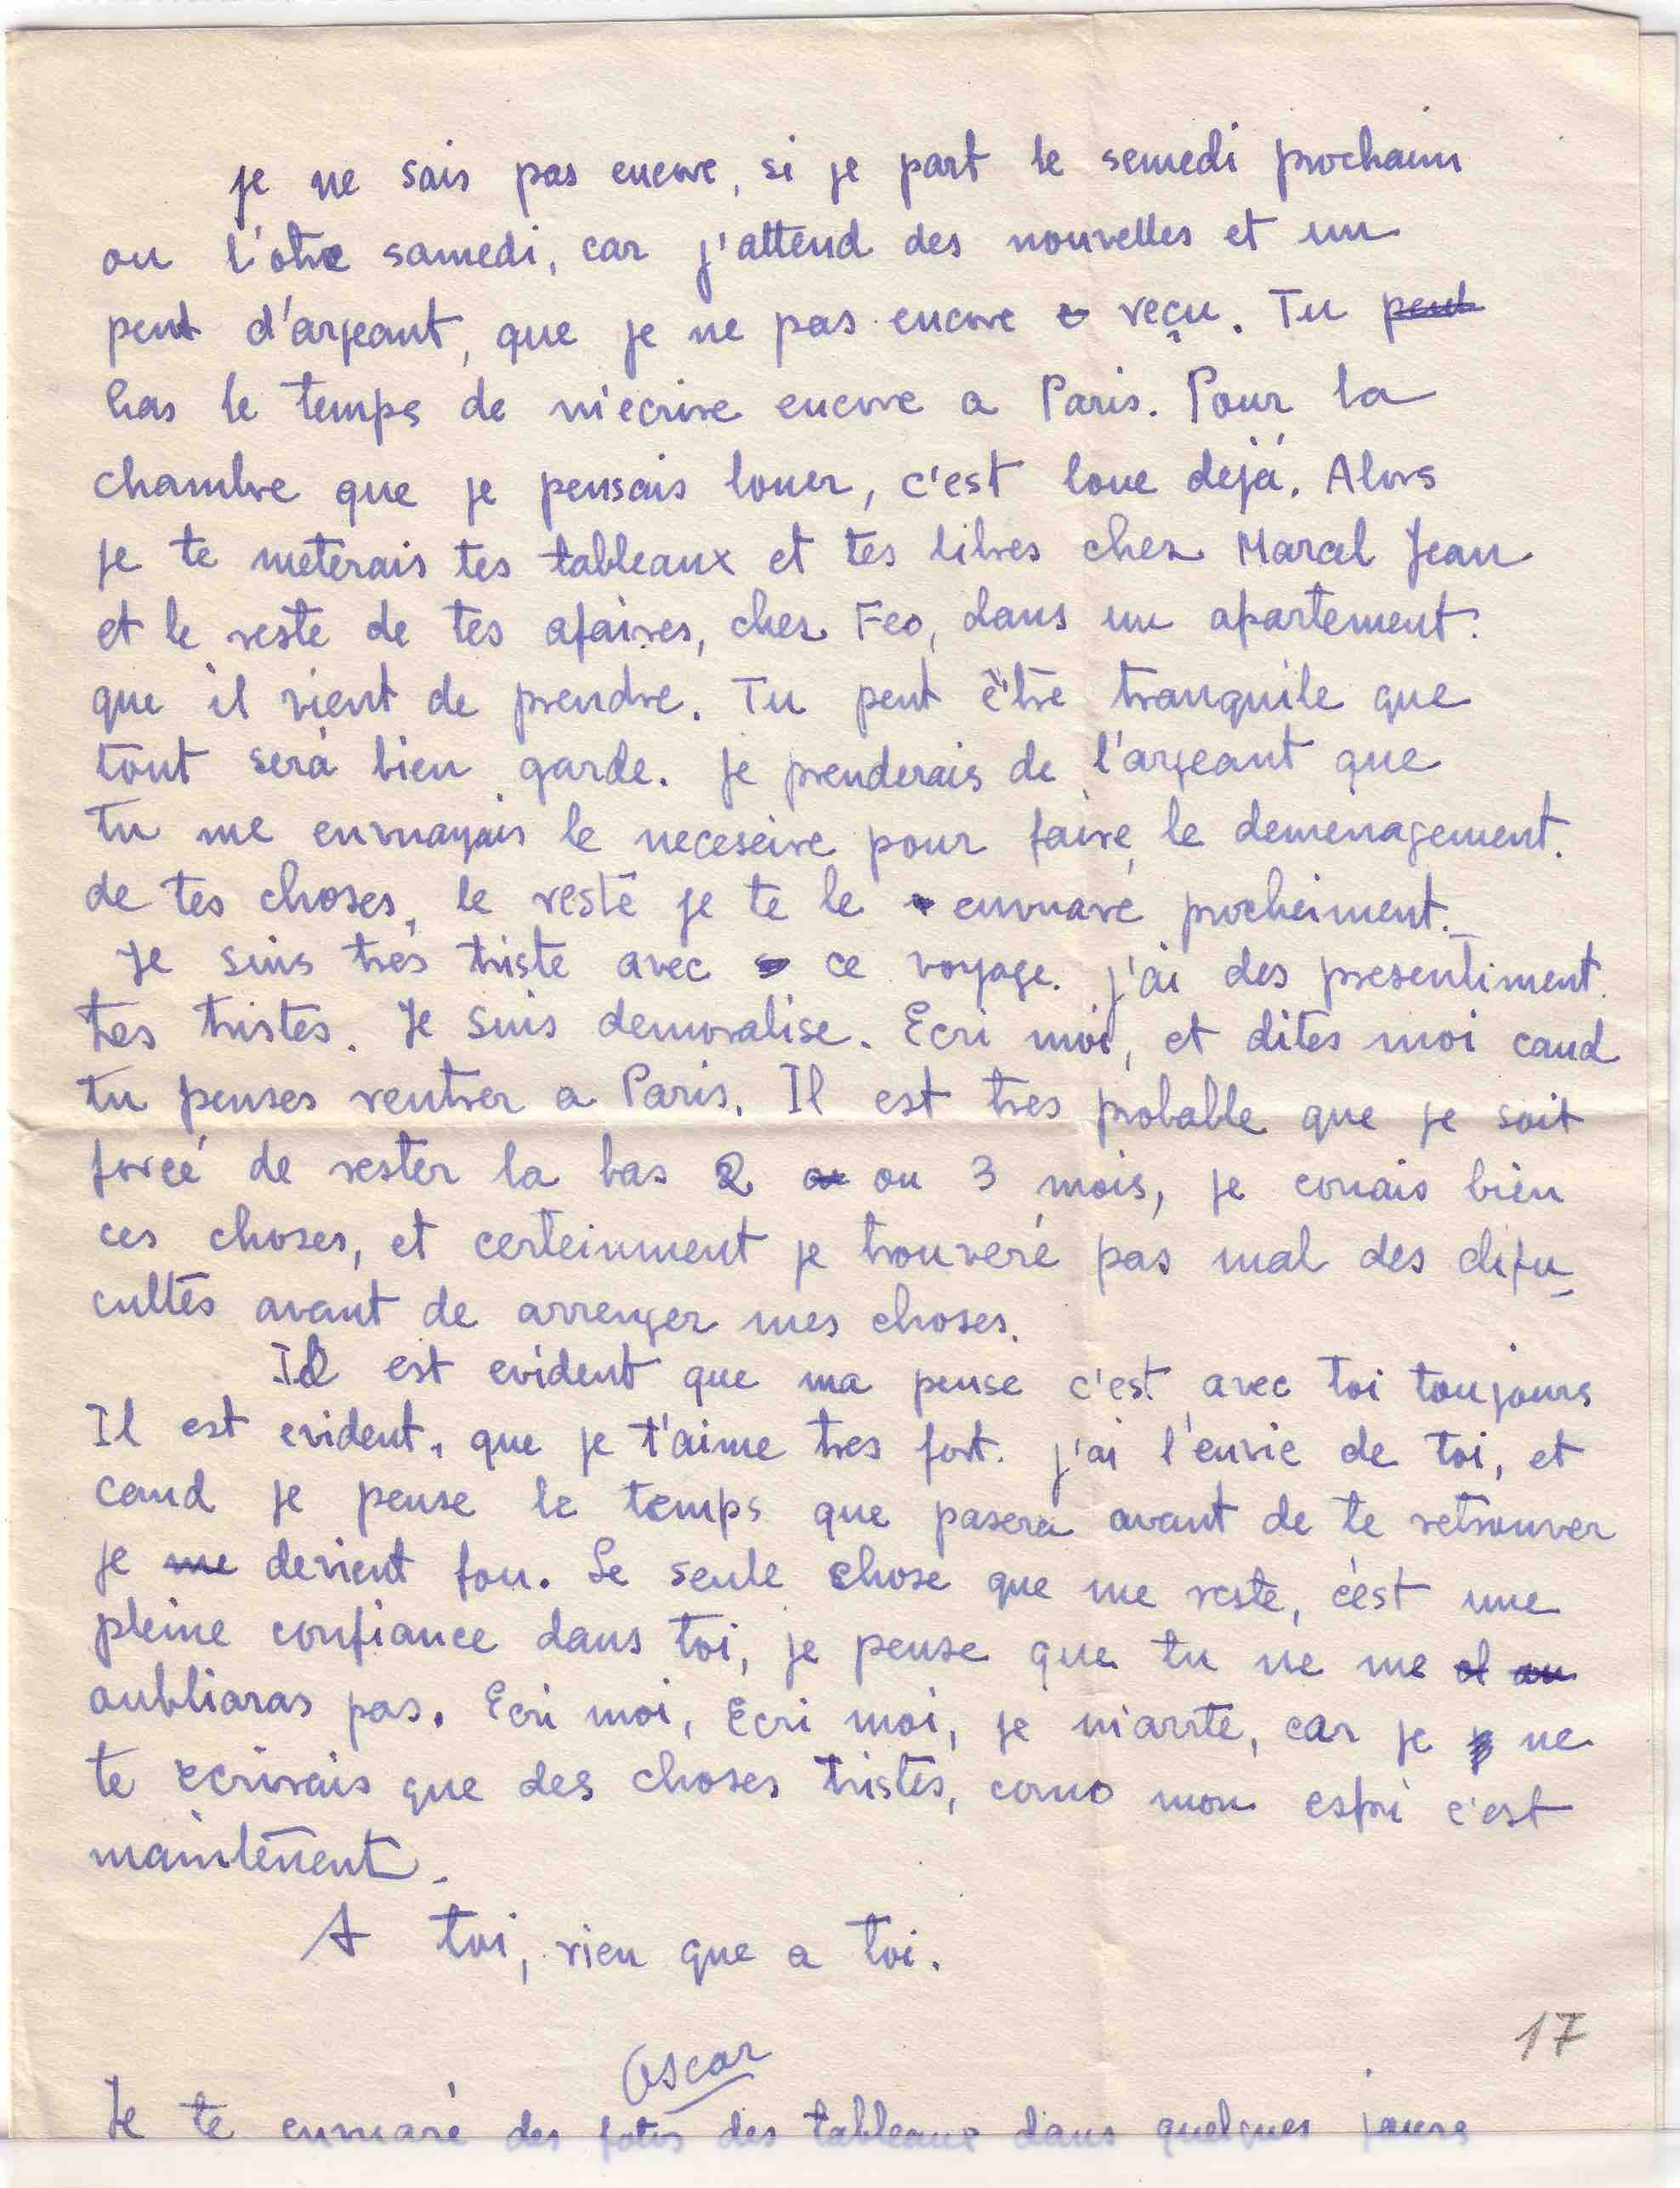 je ne sais pas encore, si je part le semedi prochain
ou l'otre samedi, car j'attend des nouvelles et un
peut d'arjeant, que je ne pas encore reçu. Tu peut
has le temps de m'ecrire encore a Paris. Pour la
chambre que je pensais louer, c'est loue dejá. Alors
je te meterais tes tableaux et tes libres chez Marcel Jean
et le reste de tes afaires, chez Feo, dans un apartement
que il vient de prendre. Tu peut être tranquile que
tout será bien garde. Je prenderais de l'arjeant que
tu me envuayais le neceseire pour faire le demenagement.
de tes choses, le reste je te le envuaré procheiment.
Je suis trés triste avec ce voyage. j'ai des presentiment
tres tristes. Je suis demoralise. Ecri moi, et dites moi cand
tu penses rentrer a Paris. Il est tres probable que je soit
forcé de rester la bas 2 ou 3 mois, je conais bien
ces choses, et certeinment je trouveré pas mal des difu-
cultés avant de arrenjer mes choses.
Il est evident que ma pense c'est avec toi toujours
Il est evident, que je t'aime tres fort. j'ai l'envie de toi, et
cand je pense le temps que pasera avant de te retrouver
je me devient fou. Le seule chose que me reste, c'est une
pleine confiance dans toi, je pense que tu ne me
oubliaras pas. Ecri moi, Ecri moi, je m'arrte, car je ne
te ecrirais que des choses tristes, como mon espri c'est
maintenent.
A toi, rien que a toi.
Oscar
17
Je te envuaré des fotos des tableaux dans quelques jours